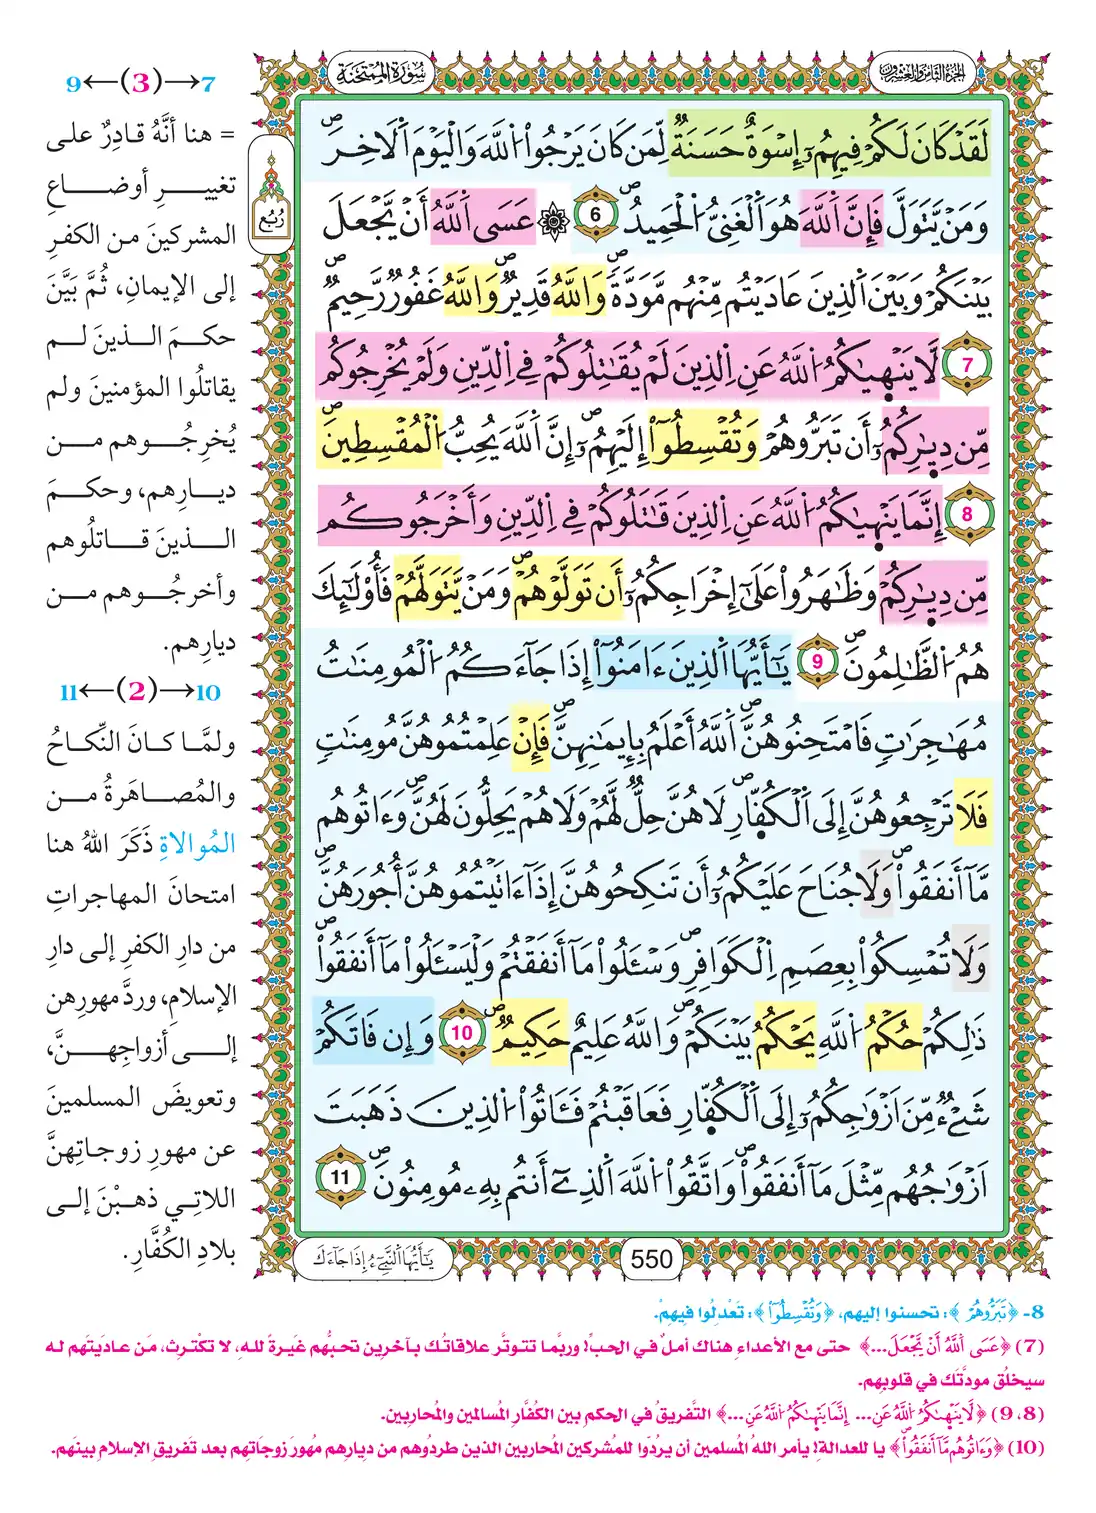 الجزء الثامن والعشرون
سورة الممتحنة
لَقَدْ كَانَ لَكُمْ فِيهِمُۥٓ إِسْوَةٌ حَسَنَةٌ لِّمَن كَانَ يَرْجُوا۟ اللَّهَ وَالْيَوْمَ الَاخِرَ ۖ
وَمَنْ يَّتَوَلَّ فَإِنَّ اللَّهَ هُوَ الْغَنِيُّ الْحَمِيدُ ۖ 6 ۞ عَسَى اللَّهُ أَنْ يَّجْعَلَ
بَيْنَكُمْ وَبَيْنَ الَّذِينَ عَادَيْتُم مِّنْهُم مَّوَدَّةً ۖ وَاللَّهُ قَدِيرٌ ۖ وَاللَّهُ غَفُورٌ رَّحِيمٌ ۖ
7 لَّا يَنْهَىٰكُمُ اللَّهُ عَنِ الَّذِينَ لَمْ يُقَٰتِلُوكُمْ فِي الدِّينِ وَلَمْ يُخْرِجُوكُم
مِّن دِيَٰرِكُمُۥٓ أَن تَبَرُّوهُمْ وَتُقْسِطُوٓا۟ إِلَيْهِمُۥٓ ۖ إِنَّ اللَّهَ يُحِبُّ الْمُقْسِطِينَ ۖ
8 إِنَّمَا يَنْهَىٰكُمُ اللَّهُ عَنِ الَّذِينَ قَٰتَلُوكُمْ فِي الدِّينِ وَأَخْرَجُوكُم
مِّن دِيَٰرِكُمْ وَظَٰهَرُوا۟ عَلَىٰٓ إِخْرَاجِكُمُۥٓ أَن تَوَلَّوْهُمْ ۖ وَمَنْ يَّتَوَلَّهُمْ فَأُو۟لَٰٓئِكَ
هُمُ الظَّٰلِمُونَ ۖ 9 يَٰٓأَيُّهَا الَّذِينَ ءَامَنُوٓا۟ إِذَا جَآءَكُمُ الْمُومِنَٰتُ
مُهَٰجِرَٰتٍ فَامْتَحِنُوهُنَّ ۖ اللَّهُ أَعْلَمُ بِإِيمَٰنِهِنَّ ۖ فَإِنْ عَلِمْتُمُوهُنَّ مُومِنَٰتٍ
فَلَا تَرْجِعُوهُنَّ إِلَى الْكُفَّارِ ۖ لَا هُنَّ حِلٌّ لَّهُمْ وَلَا هُمْ يَحِلُّونَ لَهُنَّ ۖ وَءَاتُوهُم
مَّآ أَنفَقُوا۟ ۖ وَلَا جُنَاحَ عَلَيْكُمُۥٓ أَن تَنكِحُوهُنَّ إِذَآ ءَاتَيْتُمُوهُنَّ أُجُورَهُنَّ ۖ
وَلَا تُمْسِكُوا۟ بِعِصَمِ الْكَوَافِرِ ۖ وَسْـَٔلُوا۟ مَآ أَنفَقْتُمْ وَلْيَسْـَٔلُوا۟ مَآ أَنفَقُوا۟ ۖ
ذَٰلِكُمْ حُكْمُ اللَّهِ يَحْكُمُ بَيْنَكُمْ ۖ وَاللَّهُ عَلِيمٌ حَكِيمٌ ۖ 10 وَإِن فَاتَكُمْ
شَيْءٌ مِّنَ اَزْوَٰجِكُمُۥٓ إِلَى الْكُفَّارِ فَعَاقَبْتُمْ فَـَٔاتُوا۟ الَّذِينَ ذَهَبَتَ
اَزْوَٰجُهُم مِّثْلَ مَآ أَنفَقُوا۟ ۖ وَاتَّقُوا۟ اللَّهَ الَّذِےٓ أَنتُم بِهِۦ مُومِنُونَ ۖ 11
يَٰٓأَيُّهَا النَّبِيٓءُ إِذَا جَآءَكَ
550
رُبُع
7→(3)←9
= هنا أنَّهُ قادِرٌ على
تغييرِ أوضاعِ
المشركينَ من الكفرِ
إلى الإيمانِ، ثُمَّ بَيَّنَ
حكمَ الذينَ لم
يقاتلُوا المؤمنينَ ولم
يُخرِجُوهم من
ديارِهم، وحكمَ
الذينَ قاتلُوهم
وأخرجُوهم من
ديارِهم.
10→(2)←11
ولمَّا كانَ النِّكاحُ
والمُصاهَرةُ من
المُوالاةِ ذَكَرَ اللهُ هنا
امتحانَ المهاجراتِ
من دارِ الكفرِ إلى دارِ
الإسلامِ، وردَّ مهورِهن
إلى أزواجِهنَّ،
وتعويضَ المسلمينَ
عن مهورِ زوجاتِهنَّ
اللاتِي ذهبْنَ إلى
بلادِ الكُفَّارِ.
8- ﴿تَبَرُّوهُمْ﴾: تحسنوا إليهم، ﴿وَتُقْسِطُوٓا۟﴾: تَعْدِلُوا فيهِمْ.
(7) ﴿عَسَى اللَّهُ أَنْ يَّجْعَلَ...﴾ حتى مع الأعداءِ هناك أملٌ في الحبِّ! وربَّما تتوتَّر علاقاتُك بآخرين تحبُّهم غَيرةً للهِ، لا تكْترِث، مَن عاديتَهم له
سيخلُق مودتَك في قلوبِهم.
(8، 9) ﴿لَّا يَنْهَىٰكُمُ اللَّهُ عَنِ... إِنَّمَا يَنْهَىٰكُمُ اللَّهُ عَنِ...﴾ التَّفريقُ في الحكمِ بين الكُفَّارِ المُسالمين والمُحاربِين.
(10) ﴿وَءَاتُوهُم مَّآ أَنفَقُوا۟﴾ يا للعدالةِ! يأمر اللهُ المُسلمين أن يردُّوا للمُشركين المُحاربين الذين طردُوهم من ديارِهم مُهورَ زوجَاتِهم بعد تَفريقِ الإسلامِ بينَهم.